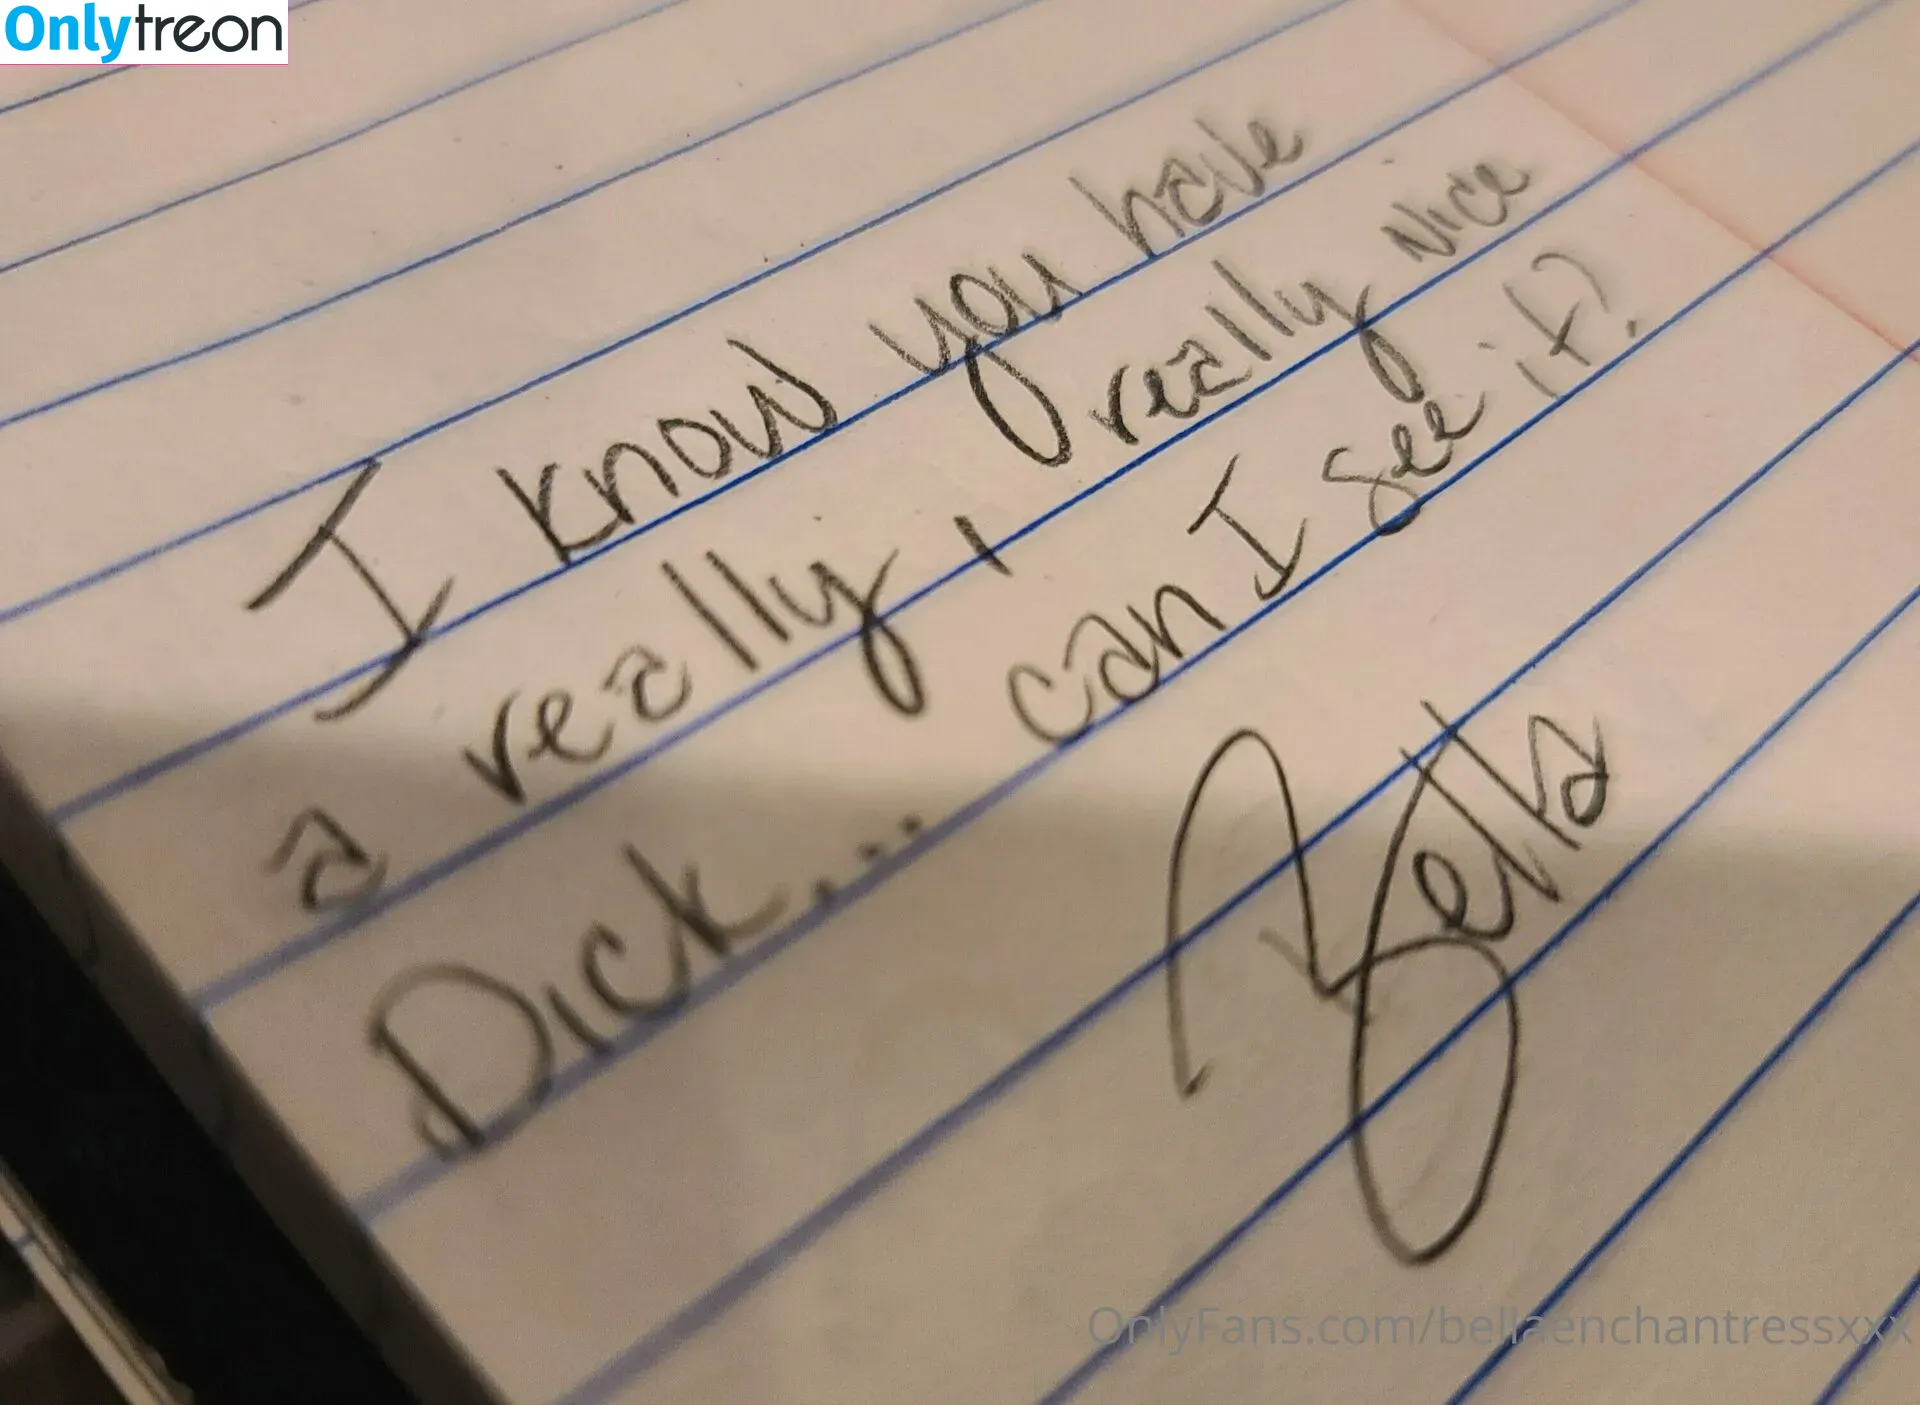 Onlytreon
I know you have
a really, really nice
Dick... can I see it?
Bella
OnlyFans.com/bellaenchantressxxx